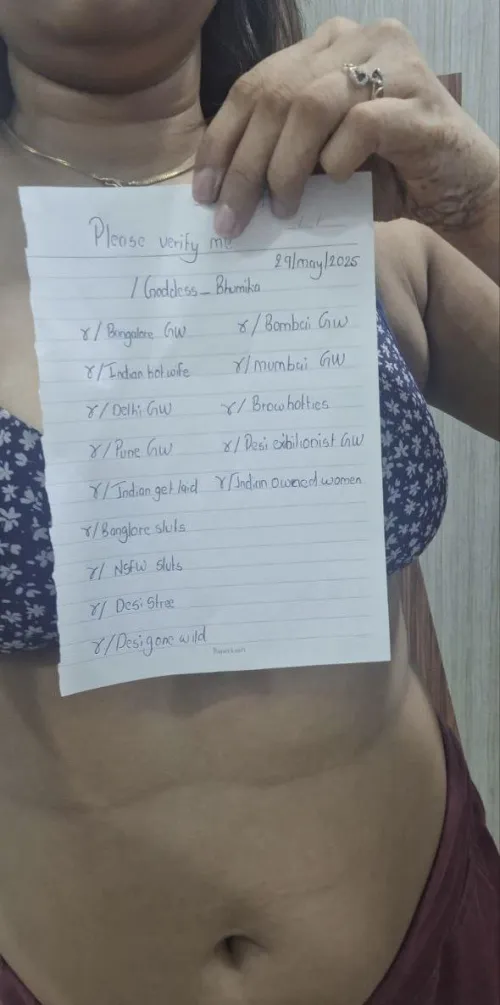 Please verify me
29/may/2025
/Goddess_Bhumika
r/Bangalore GW
r/Bombai GW
r/Indian hotwife
r/mumbai GW
r/Delhi GW
r/Browhotties
r/Pune GW
r/Desi exibilionist GW
r/Indian get laid
r/Indian owened women
r/Banglore sluts
r/ NSFW sluts
r/ Desi Stree
r/Desi gone wild